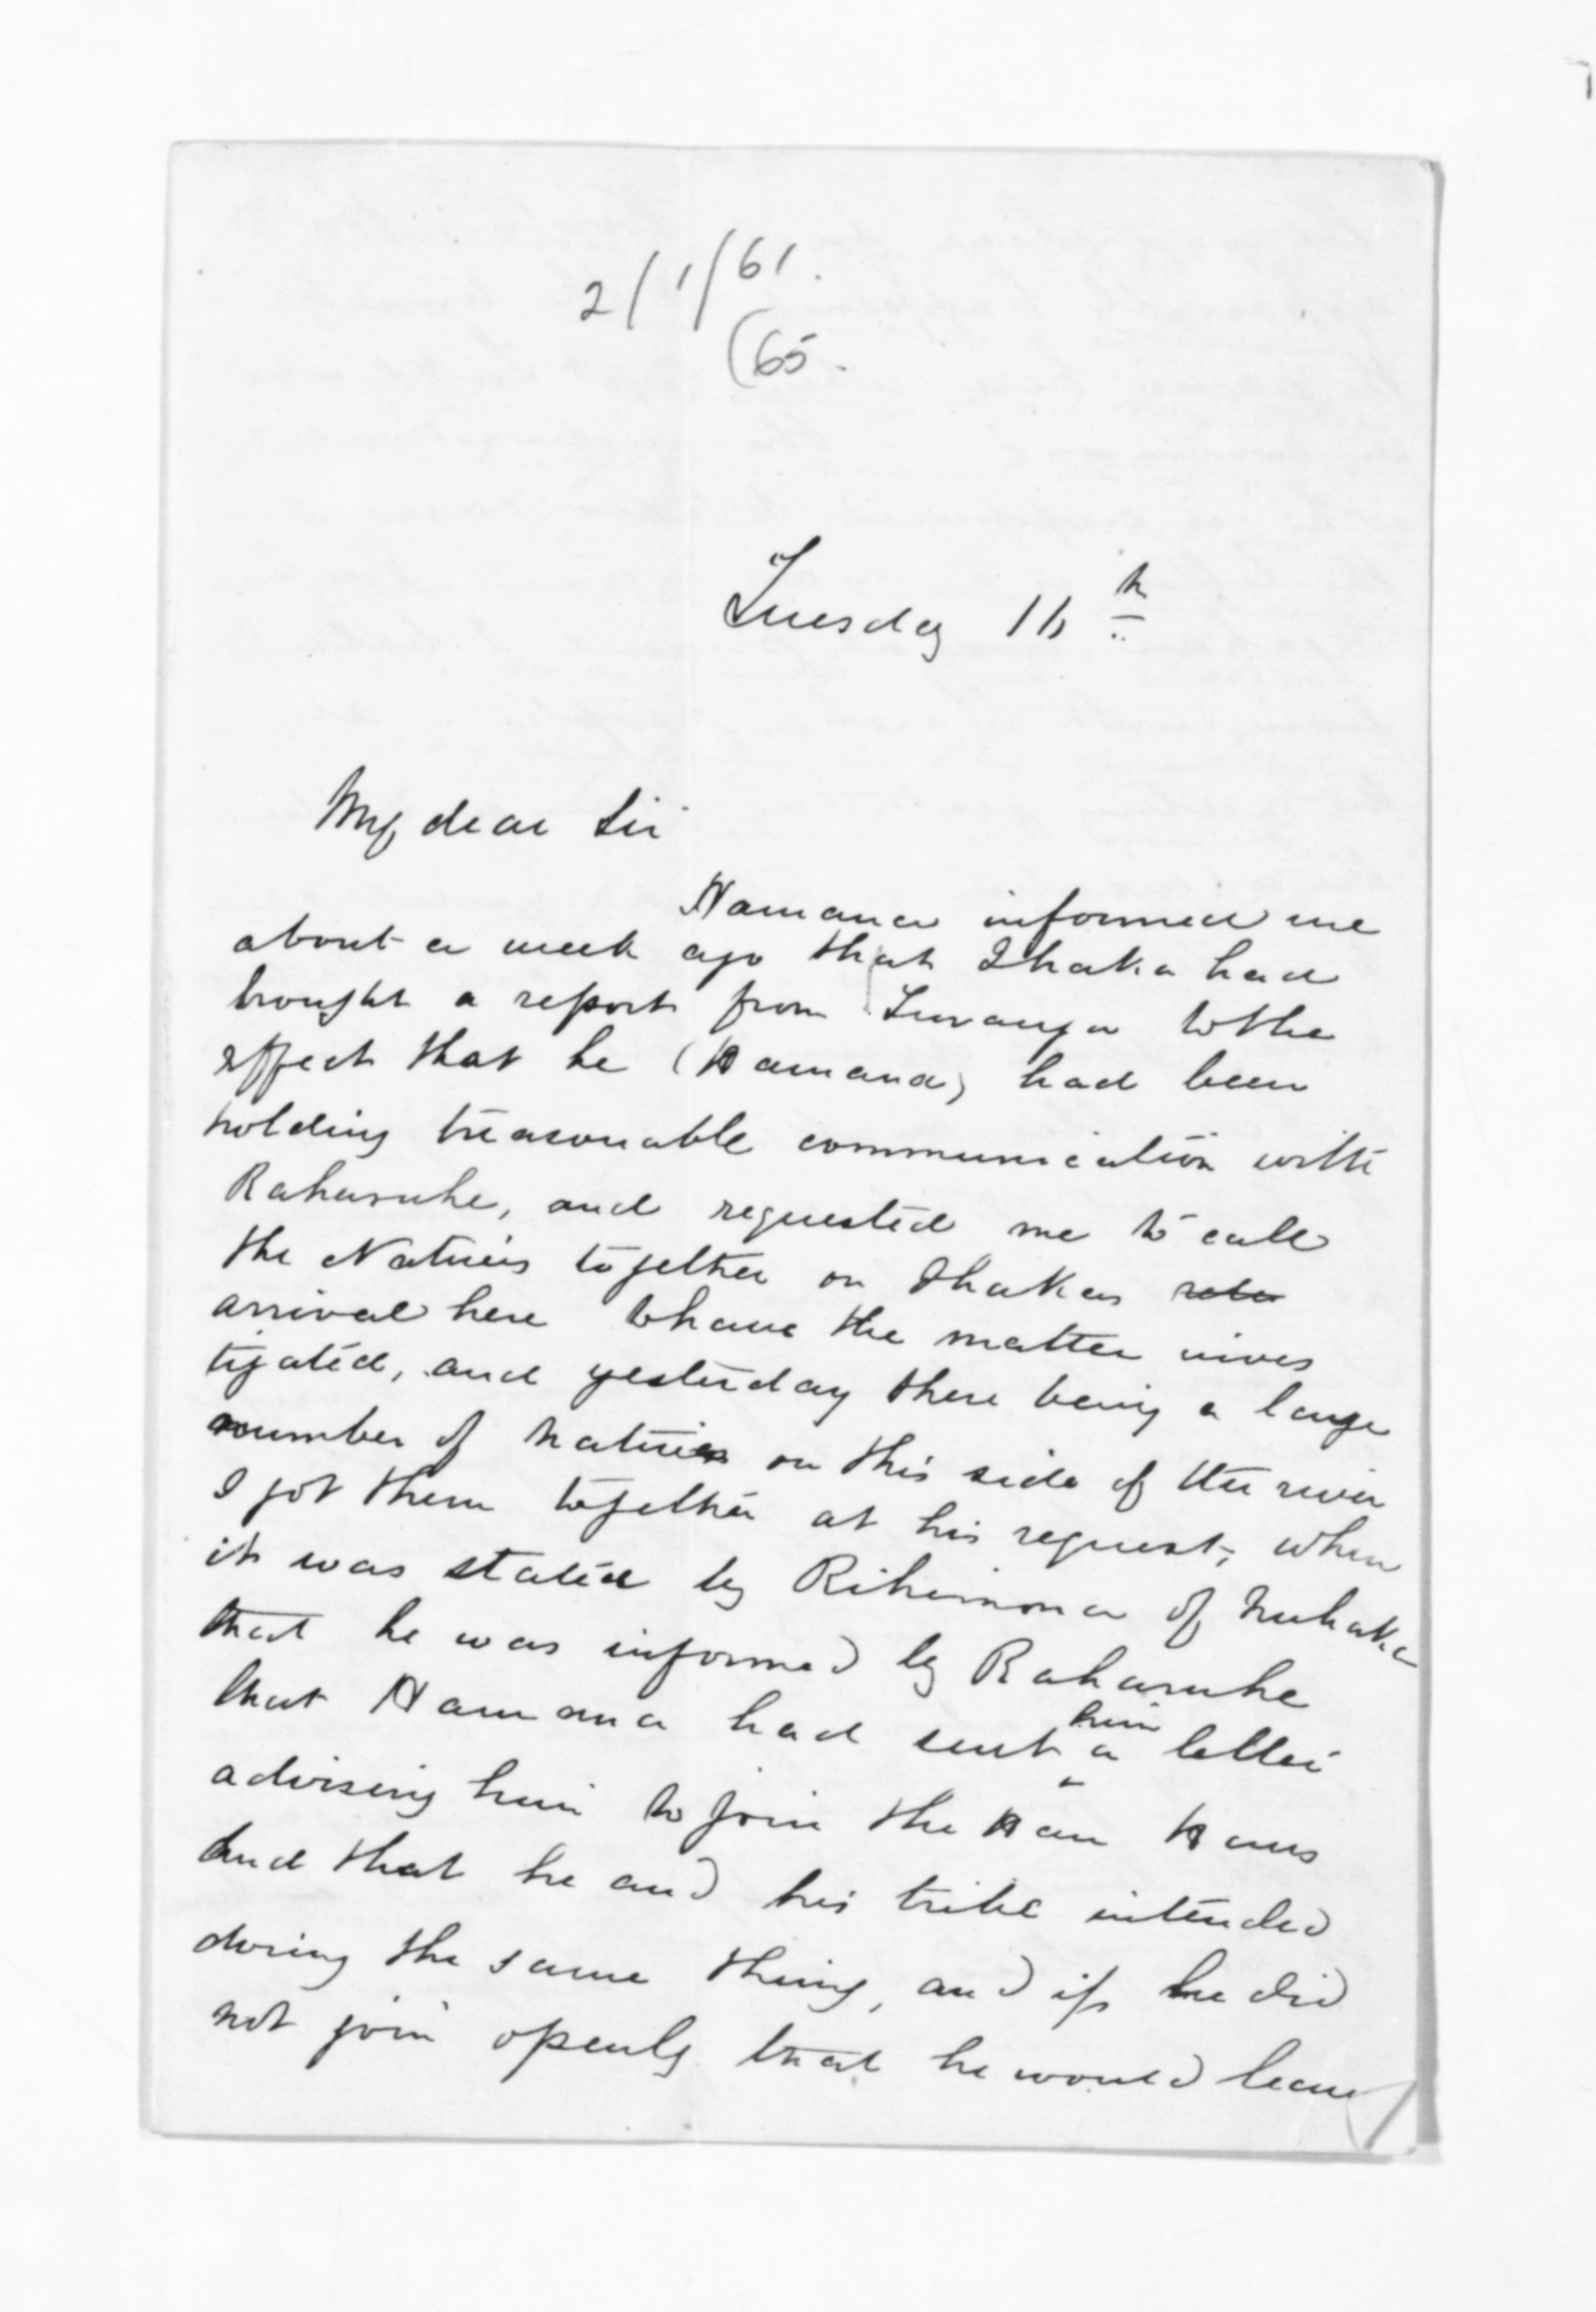 2/1/61.
(65.
Tuesday 16th
My dear Sir
Hamana informed me
about a week ago that Ihaka had
brought a report from Turanga to the
effect that he (Hamana) had been
holding treasonable communication with
Rahuruhe, and requested me to call
the Natives together on Ihakas
arrival here to have the matter inves
tigated, and yesterday there being a large
number of natives on this side of the river
I got them together at his request, when
it was stated by Rihimona of Nuhaka
that he was informed by Raharuhe
that Hamana had sent him a letter
advising him to join the Hau Haus
and that he and his tribe intended
doing the same thing, and if he did
not join openly that he would leave